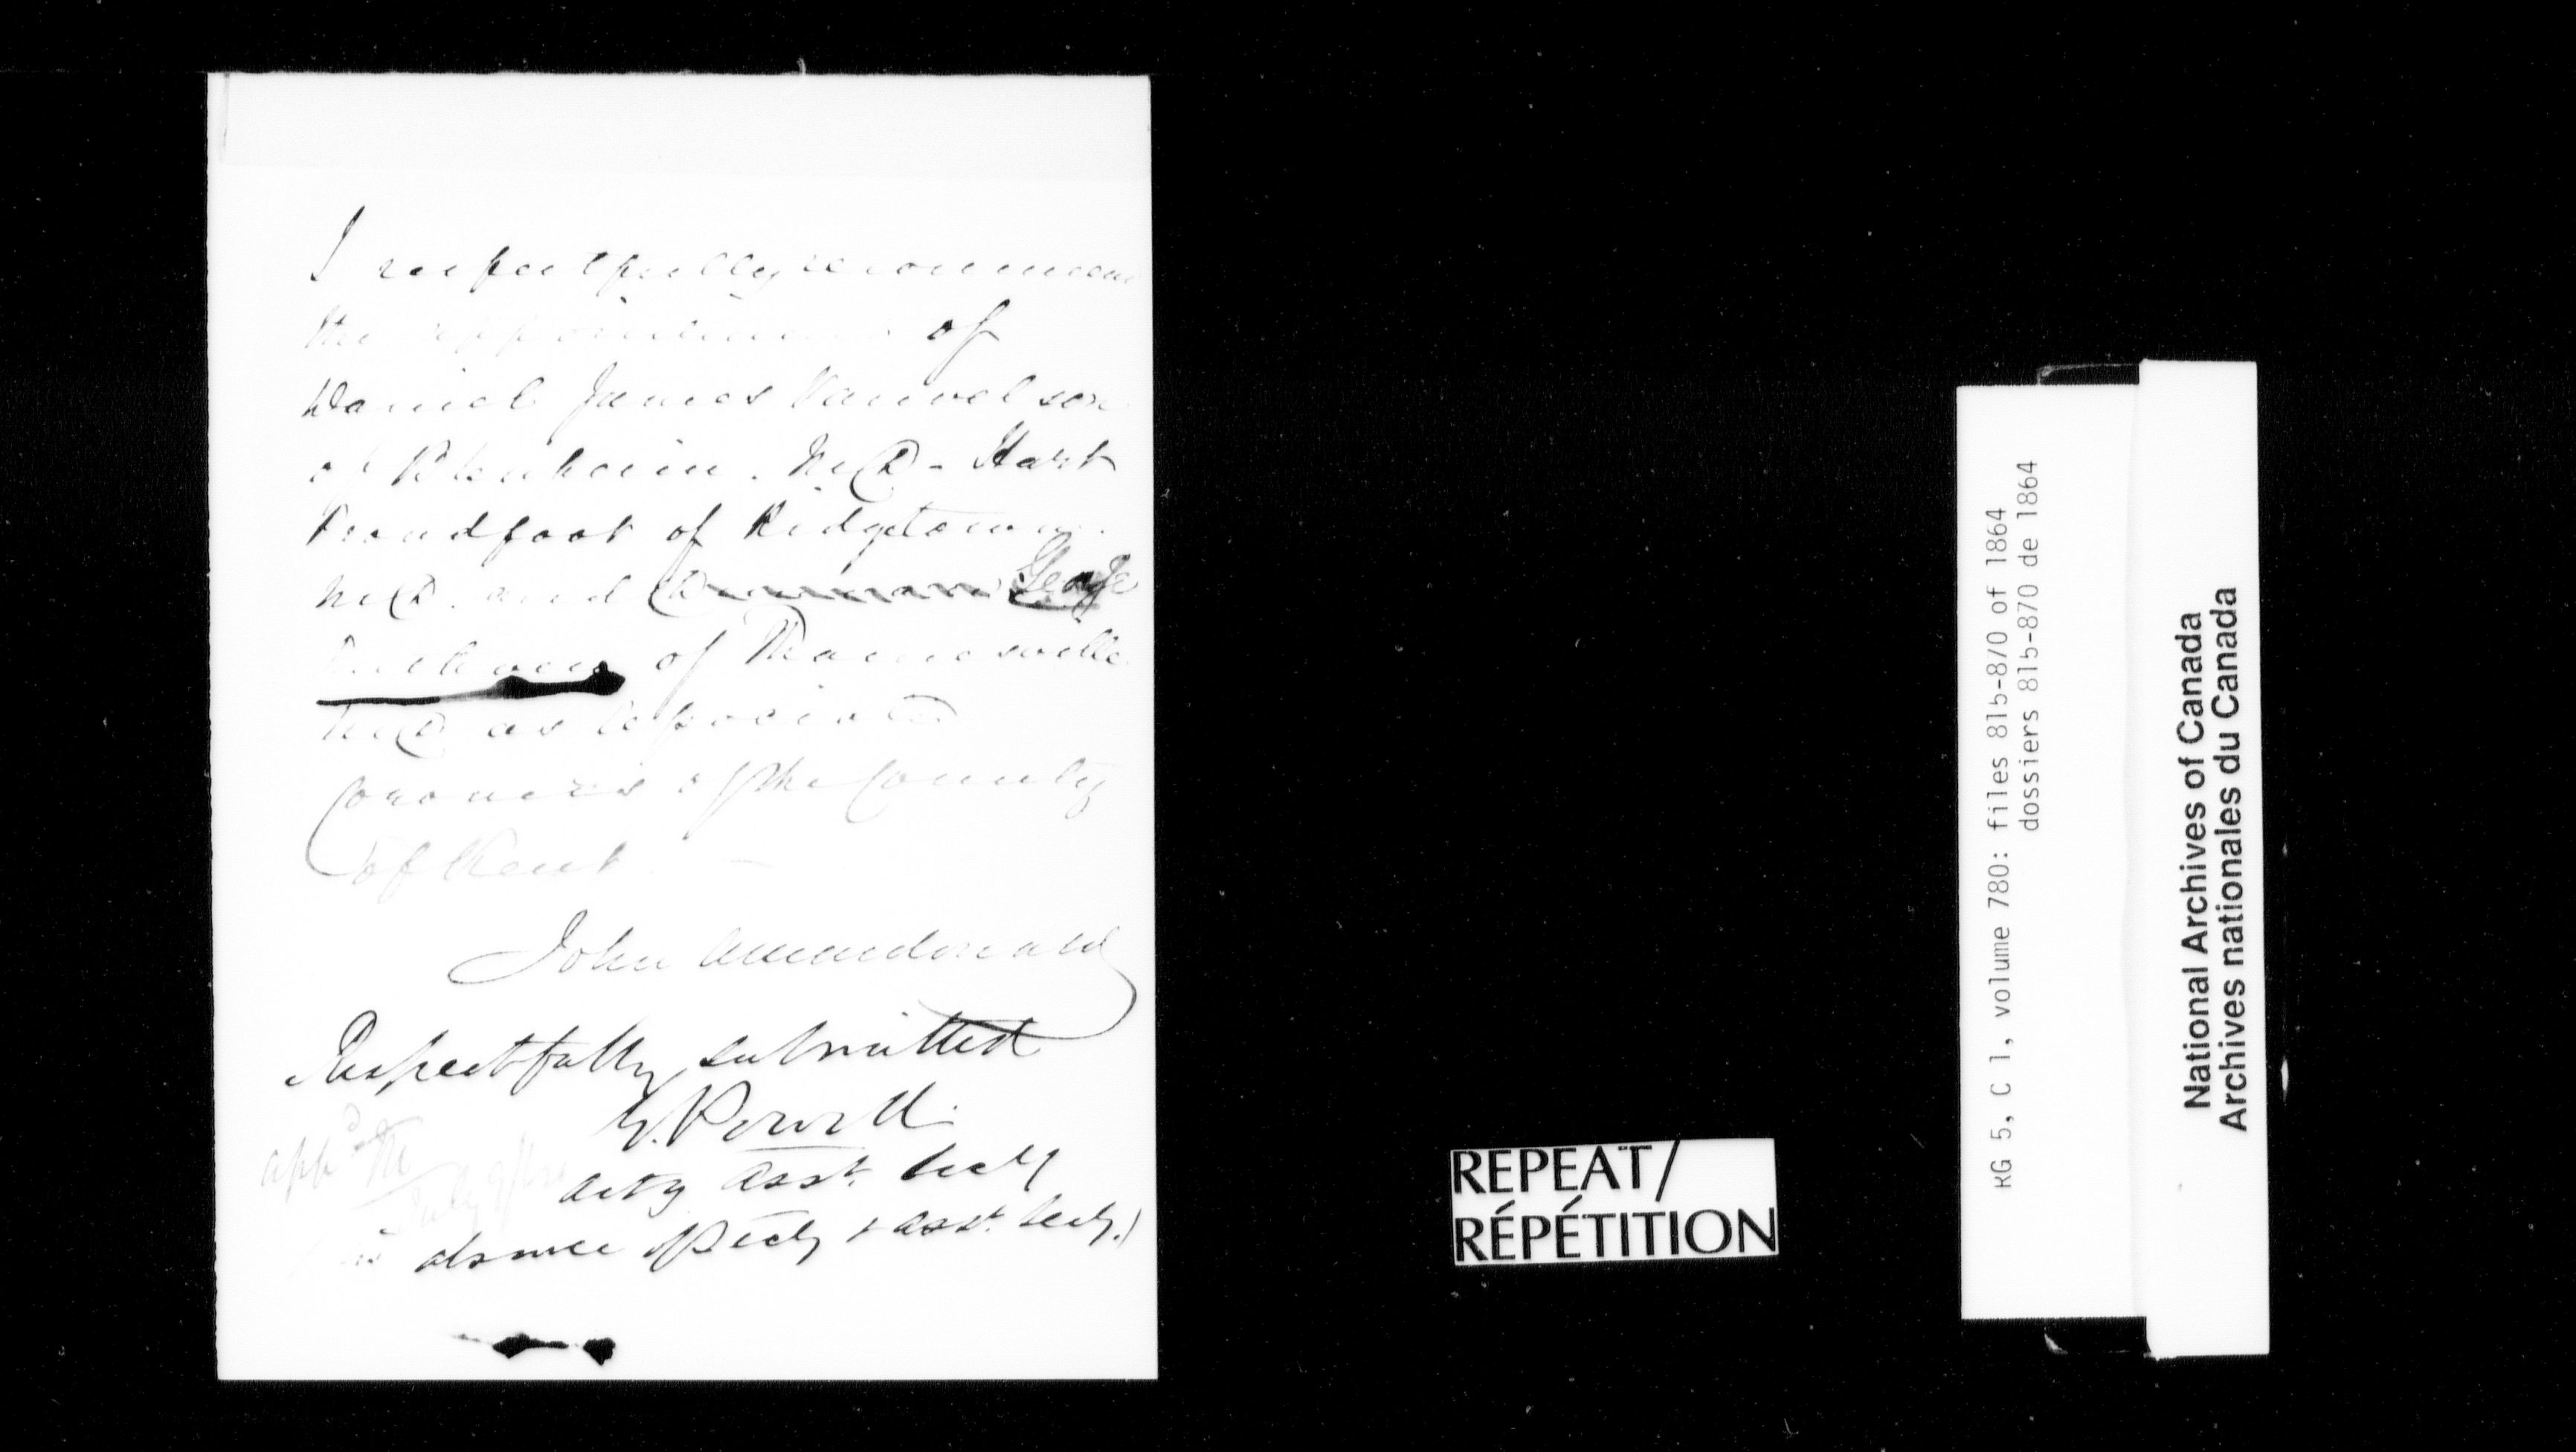 I respectfully recommend
the appointment of
Daniel James Vanvelson
of Blenheim. M.D. Hart
Proudfoot of Ridgetown
M.D. and George
of Thamesville
M.D. as Associate
Coroners of the County
of Kent. —
John A Macdonald
Respectfully submitted
G. Powell
actg asst. Secy
appd M
July
(in absence of Secy & asst. Secy.)
REPEAT/
RÉPÉTITION
RG 5, C 1, volume 780: files 815-870 of 1864
dossiers 815-870 de 1864
National Archives of Canada
Archives nationales du Canada